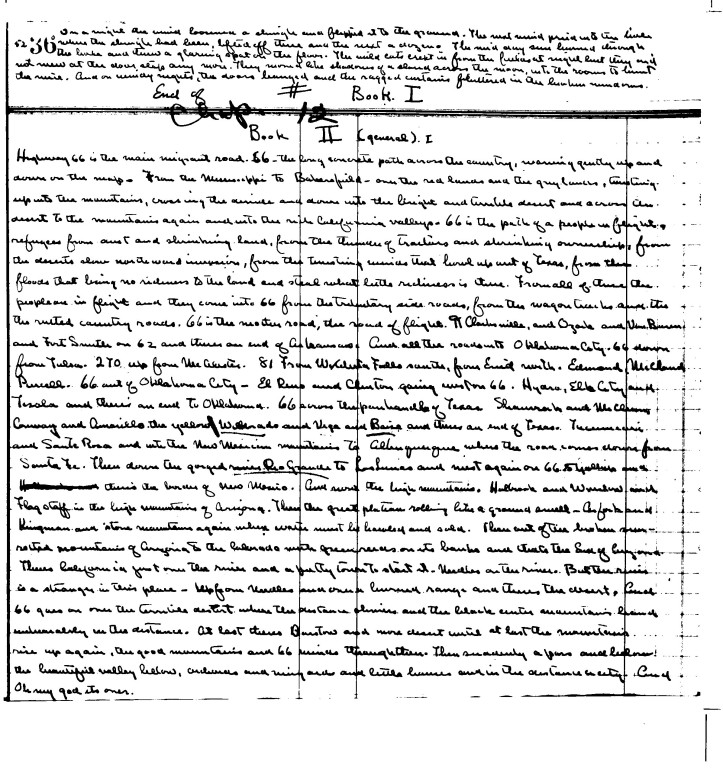 On a night the wind loosened a shingle and flipped it to the ground. The next wind pried into the hole
52 "36" where the shingle had been, lifted off three and the next a dozen. The mid day sun burned through
the hole and threw a glaring spot on the floor. The wild cats crept in from the fields at night but they did
not mew at the door step any more. They moved like shadows of a cloud across the moon, into the rooms to hunt
the mice. And on windy nights the doors banged and the ragged curtains fluttered in the broken windows.
End of # Book I
Chap. 12
Book II (general). I
Highway 66 is the main migrant road. 66 - the long concrete path across the country, waving gently up and
down on the map - From the Mississippi to Bakersfield - over the red lands and the grey lands, twisting
up into the mountains, crossing the divide and down into the bright and terrible desert and across the
desert to the mountains again and into the rich California valleys. 66 is the path of a people in flight,
refugees from dust and shrinking land, from the thunder of tractors and shrinking ownership, from
the deserts slow northward invasion, from the twisting winds that howl up out of Texas, from the
floods that bring no richness to the land and steal what little richness is there. From all of these the
people are in flight and they come into 66 from the tributary side roads, from the wagon tracks and the
the rutted country roads. 66 is the mother road, the road of flight. Clarksville, and Ozark and Van Buren
and Fort Smith on 62 and theres an end of Arkansas. And all the roads into Oklahoma City. 66 down
from Tulsa. 270 up from McAlester. 81 From Wichita Falls south, from Enid north. Edmond, McCloud
Purcell. 66 out of Oklahoma City - El Reno and Clinton going west on 66. Hydro, Elk City and
Texola and there's an end to Oklahoma. 66 across the panhandle of Texas. Shamrock and McLean
Conway and Amarillo the yellow, Wildorado and Vega and Boise and theres an end of Texas. Tucumcari
and Santa Rosa and into the New Mexican mountains to Albuquerque where the road comes down from
Santa Fe. Then down the gorged Rio Grande to Los Lunas and west again on 66 to Gallup and
there's the border of New Mexico. And now the high mountains. Holbrook and Winslow and
Flagstaff in the high mountains of Arizona. Then the great plateau rolling like a ground swell - Ashfork and
Kingman and stone mountains again where water must be hauled and sold. Then out of the broken sun-
rotted mountains of Arizona to the Colorado with green reeds on its banks and thats the End of Arizona
Theres California just over the river and a pretty town to start it. Needles on the river. But the river
is a stranger in this place - Up from Needles and over a burned range and theres the desert. And
66 goes on over the terrible desert where the distance shimmers and the black center mountains hang
unbearably in the distance. At last theres Barstow and more desert until at last the mountains
rise up again, the good mountains and 66 winds through them. Then suddenly a pass and below
the beautiful valley below, orchards and vineyards and little houses and in the distance a city. And
Oh my god its over.